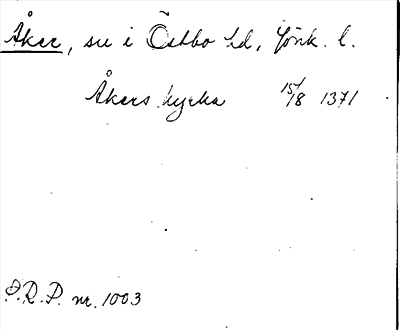 Åker, sn i Östbo hd, Jönk. l.
Åkers kyrka 15/8 1371
S.R.P. nr. 1003